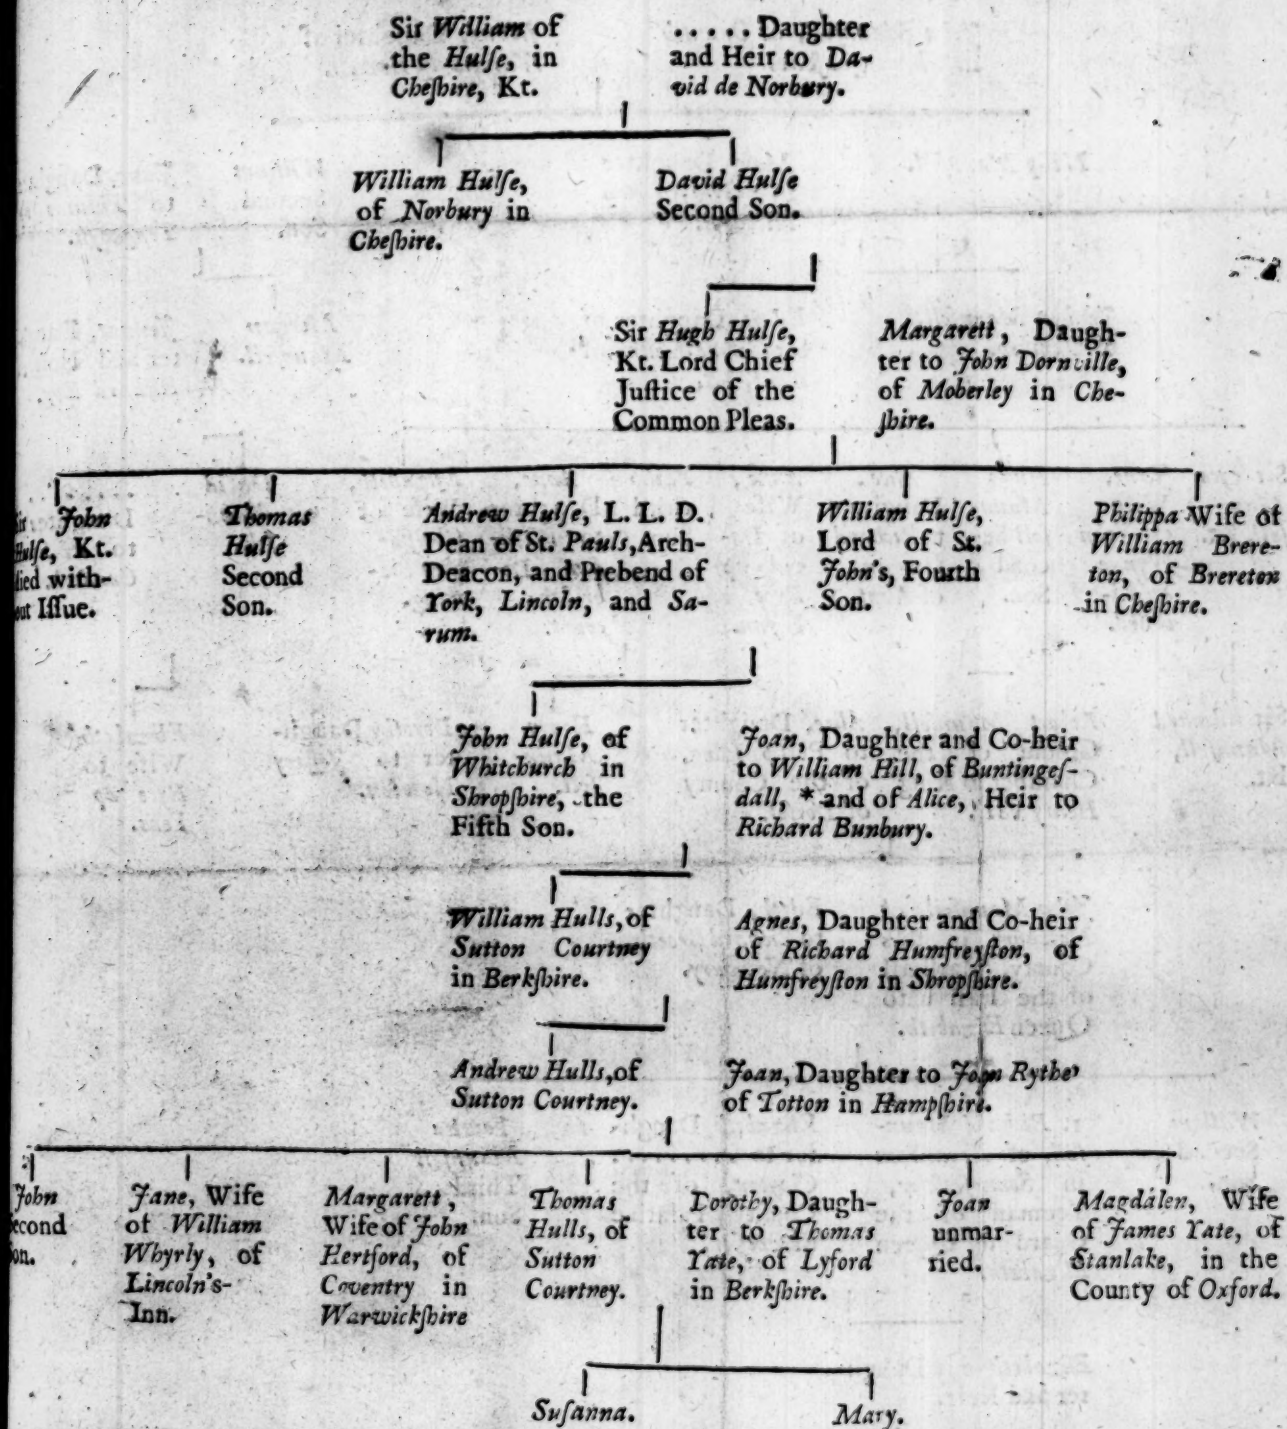 Sir William of
the Hulſe, in
Cheſhire, Kt.
. . . . . Daughter
and Heir to Da-
vid de Norbury.
William Hulſe,
of Norbury in
Cheſhire.
David Hulſe
Second Son.
Sir Hugh Hulſe,
Kt. Lord Chief
Juſtice of the
Common Pleas.
Margarett, Daugh-
ter to John Dornville,
of Moberley in Che-
ſhire.
John
Kt.
with-
Iſſue.
Thomas
Hulſe
Second
Son.
Andrew Hulſe, L. L. D.
Dean of St. Pauls, Arch-
Deacon, and Prebend of
York, Lincoln, and Sa-
rum.
William Hulſe,
Lord of St.
John's, Fourth
Son.
Philippa Wife of
William Brere-
ton, of Brereton
in Cheſhire.
John Hulſe, of
Whitchurch in
Shropſhire, the
Fifth Son.
Joan, Daughter and Co-heir
to William Hill, of Buntingeſ-
dall, * and of Alice, Heir to
Richard Bunbury.
William Hulls, of
Sutton Courtney
in Berkſhire.
Agnes, Daughter and Co-heir
of Richard Humfreyſton, of
Humfreyſton in Shropſhire.
Andrew Hulls, of
Sutton Courtney.
Joan, Daughter to John Rythe
of Totton in Hampſhire.
John
Jane, Wife
of William
Whyrly, of
Lincoln's-
Inn.
Margarett,
Wife of John
Hertford, of
Coventry in
Warwickſhire
Thomas
Hulls, of
Sutton
Courtney.
Dorothy, Daugh-
ter to Thomas
Yate, of Lyford
in Berkſhire.
Joan
unmar-
ried.
Magdalen, Wife
of James Yate, of
Stanlake, in the
County of Oxford.
Suſanna.
Mary.